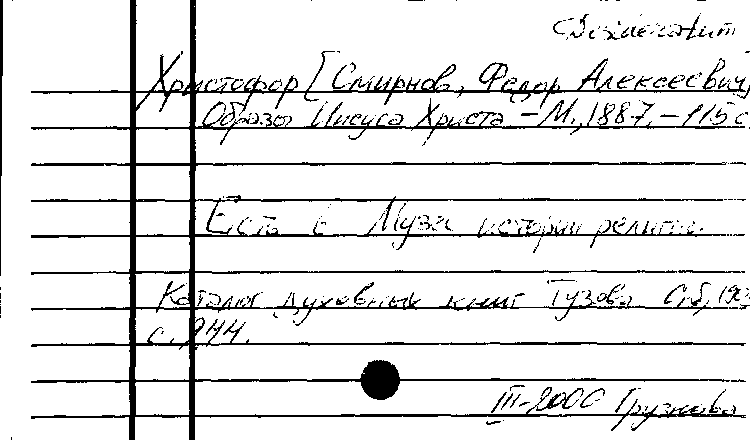 Desideratum
Христофор [Смирнов, Федор Алексеевич]
Образ Иисуса Христа – М., 1887. – 115 с
Есть в Музее истории религии.
Каталог духовных книг Тузова Спб, 19
с. 244.
III-2000 Грузнова